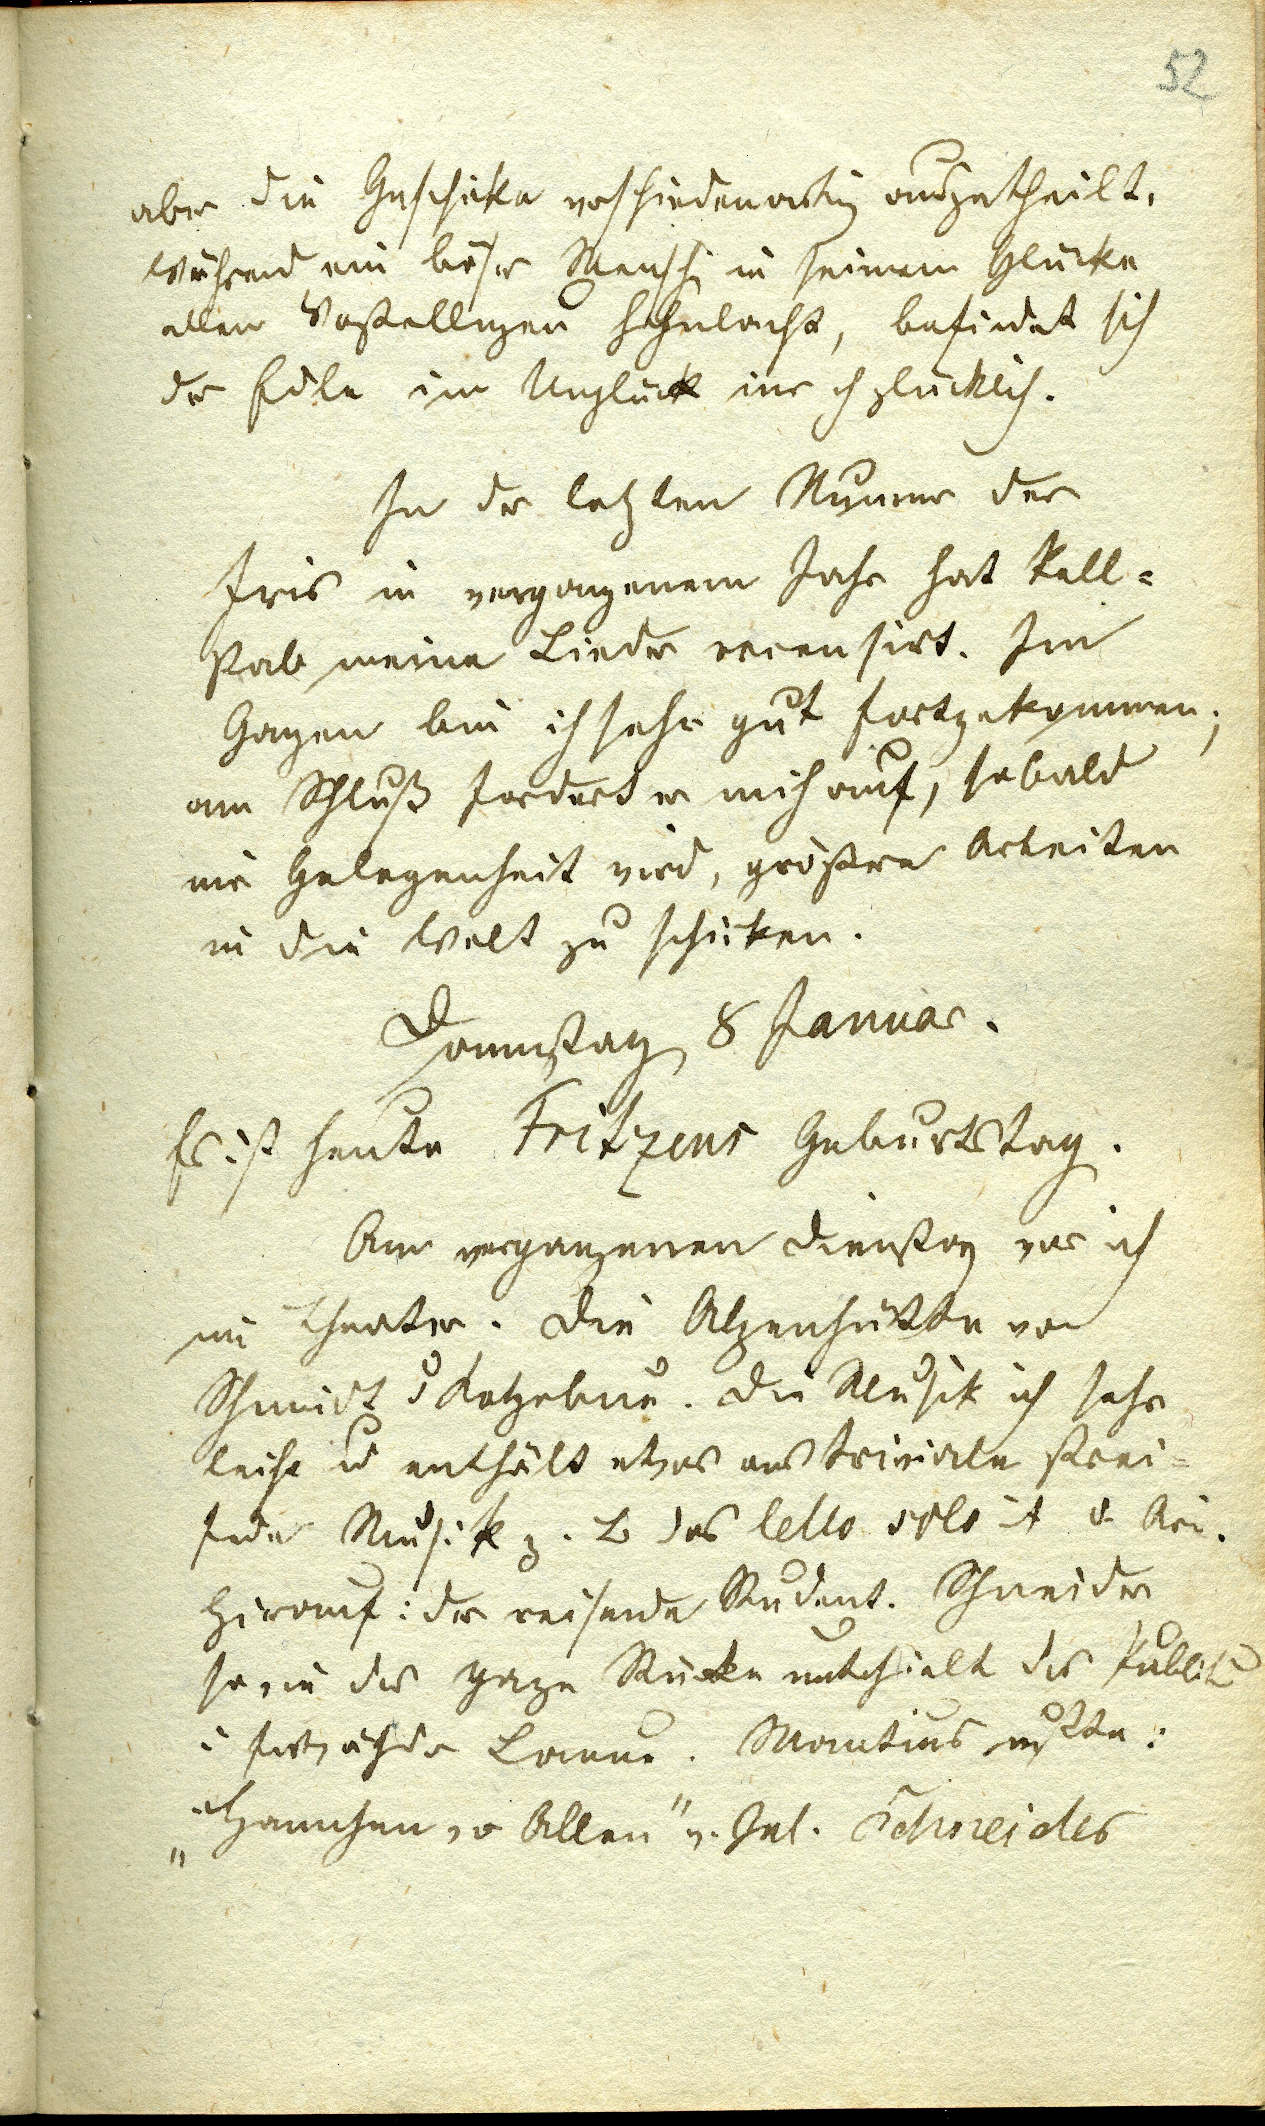 52
aber die Geschicke verschiedenartig ausgetheilt.
Während ein böser Mensch in seinem Glücke
allen Vorstellungen hohnlacht, befindet sich
der Edle im Unglück glücklich.
In der letzten Numer der
Iris im vergangenem Jahr hat Rell-
stab meine Lieder recensirt. Im
Ganzen bin ich sehr gut fortgekommen;
am Schluß fordert er mich auf, sobald
mir Gelegenheit wird, größere Arbeiten
in die Welt zu schicken.
Donnerstag 8 Januar.
Es ist heute Fritzens Geburtstag.
Am vergangenen Dienstag war ich
im Theater. Die Alpenhütte von
Schmidt u Kotzebue. Die Musik ist sehr
leicht u enthält etwas ans triviale strei-
fende Musik z. B das Cello solo i d. Arie.
Hierauf: der reisende Student. Schneider
sowie das ganze Stücke unterhielt das Publikum
i fortwährender Laune. Mantius mußte:
„Hannchen vor Allen" v. Jul. Schneider